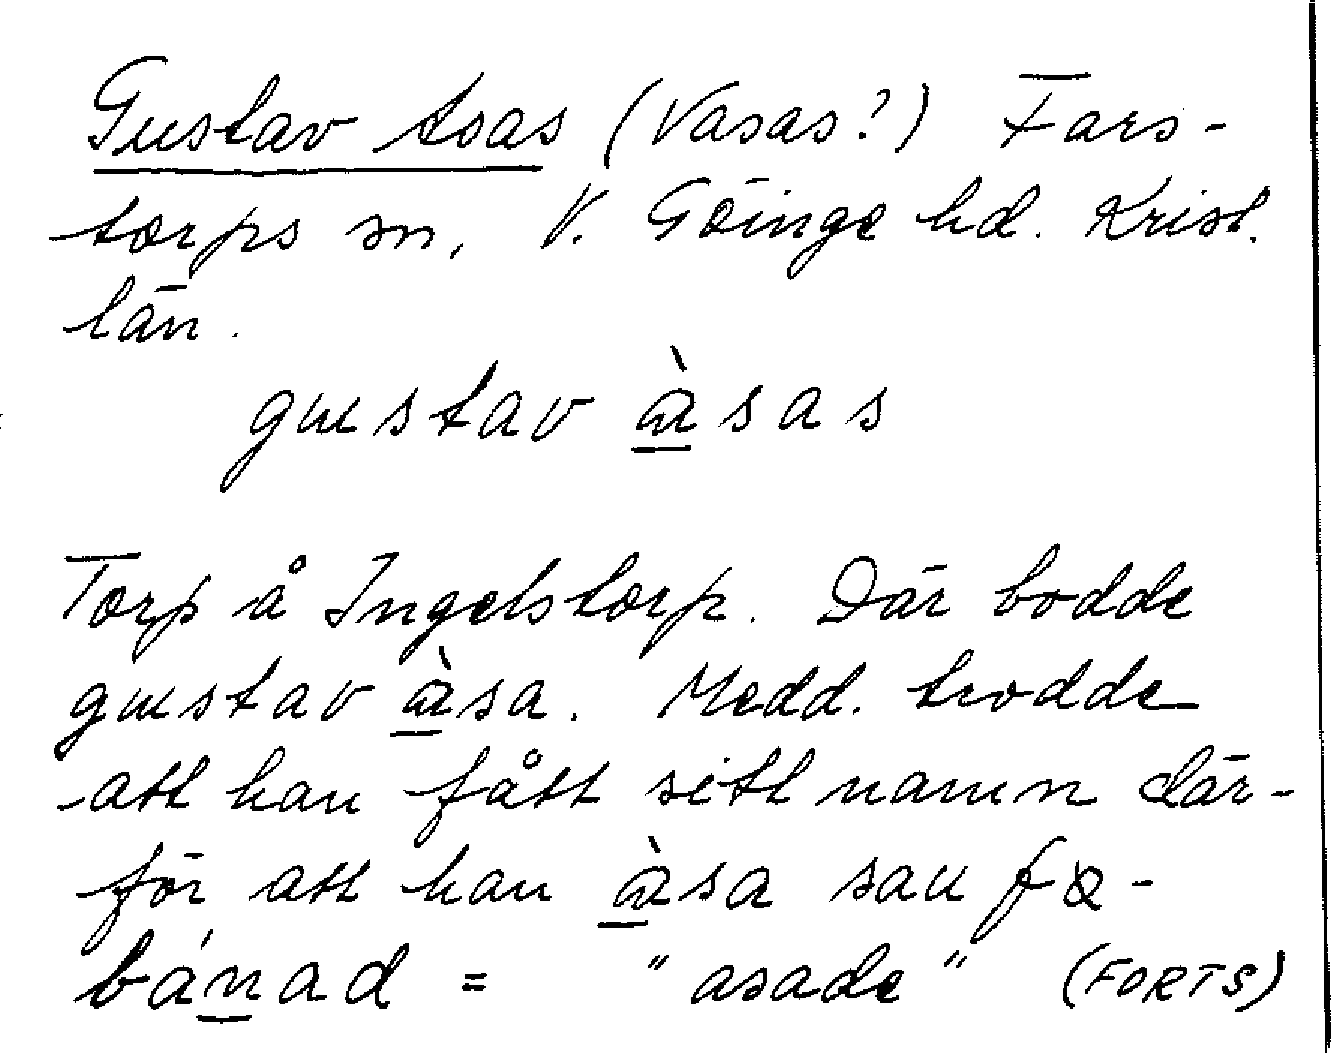 Gustav Asas (Vasas?) Fars-
torps sn, V. Göinge hd. Krist.
län.
gustav àsas
Torp å Ingelstorp. Där bodde
gustav àsa. Medd. trodde
att han fått sitt namn där-
för att han àsa sau fə-
bánad = "asade" (FORTS)